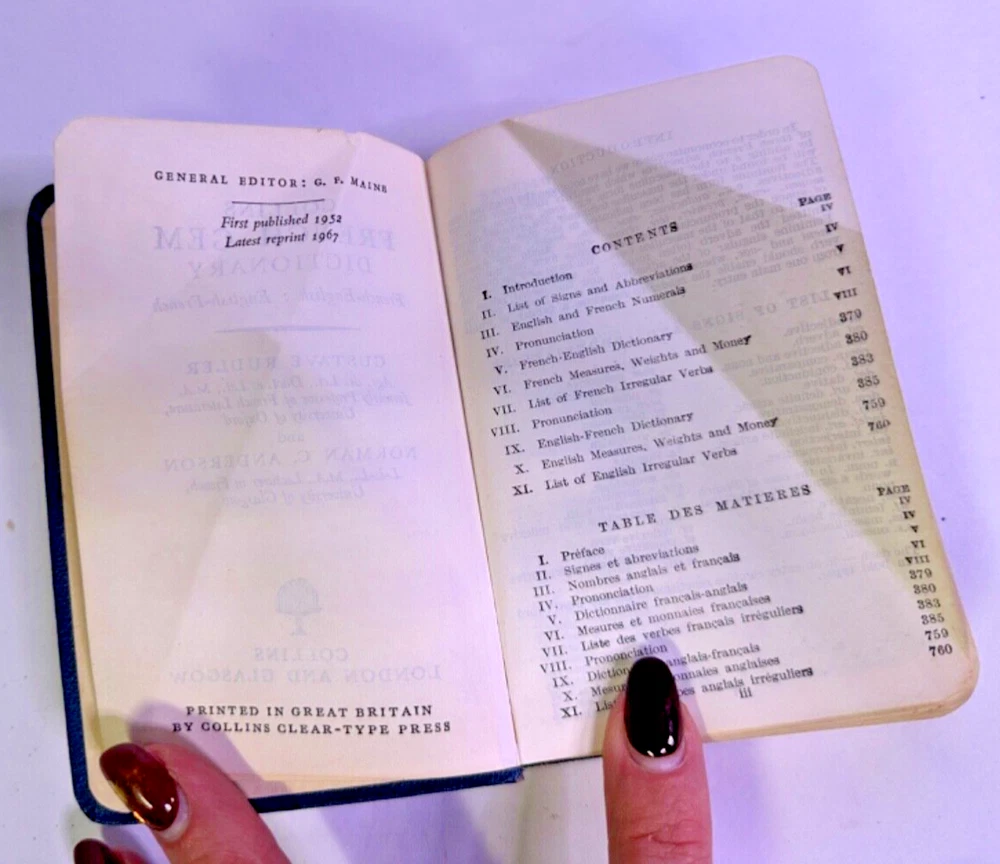 GENERAL EDITOR: G. F. MAINE
First published 1952
Latest reprint 1967
PRINTED IN GREAT BRITAIN
BY COLLINS CLEAR-TYPE PRESS
CONTENTS
PAGE
I. Introduction IV
II. List of Signs and Abbreviations IV
III. English and French Numerals V
IV. Pronunciation VI
V. French-English Dictionary VIII
VI. French Measures, Weights and Money 379
VII. List of French Irregular Verbs 380
VIII. Pronunciation 383
IX. English-French Dictionary 385
X. English Measures, Weights and Money 759
XI. List of English Irregular Verbs 760
TABLE DES MATIERES
PAGE
I. Préface IV
II. Signes et abreviations IV
III. Nombres anglais et français V
IV. Prononciation VI
V. Dictionnaire français-anglais VIII
VI. Mesures et monnaies françaises 379
VII. Liste des verbes français irréguliers 380
VIII. Prononciation 383
IX. anglais-français 385
X. anglaises 759
XI. anglais irréguliers 760
iii